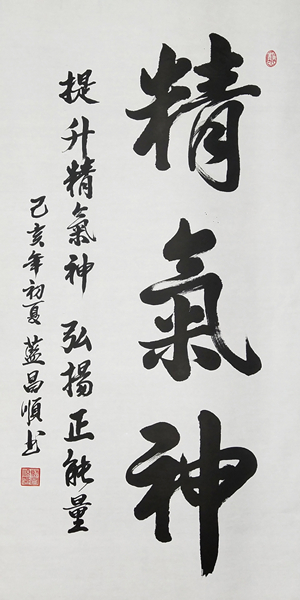 精氣神
提升精氣神 弘揚正能量
己亥年初夏 藍昌順书